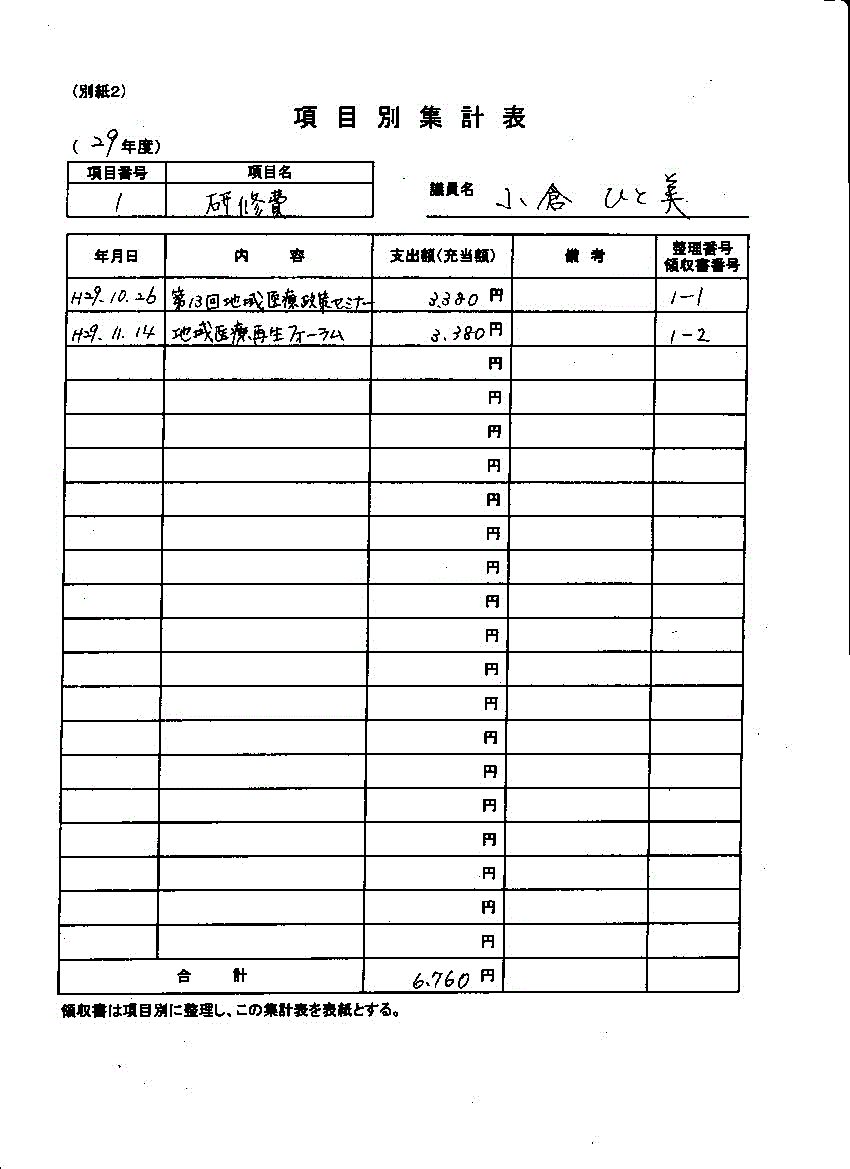 (別紙2)
項目別集計表
(29年度)
項目番号 項目名
1 研修費
議員名 小倉 ひと美
年月日 内容 支出額(充当額) 備考 整理番号 領収書番号
H29.10.26 第13回地域医療政策セミナー 3,380円 1-1
H29.11.14 地域医療再生フォーラム 3,380円 1-2
円
円
円
円
円
円
円
円
円
円
円
円
円
円
円
円
円
円
合計 6,760円
領収書は項目別に整理し、この集計表を表紙とする。